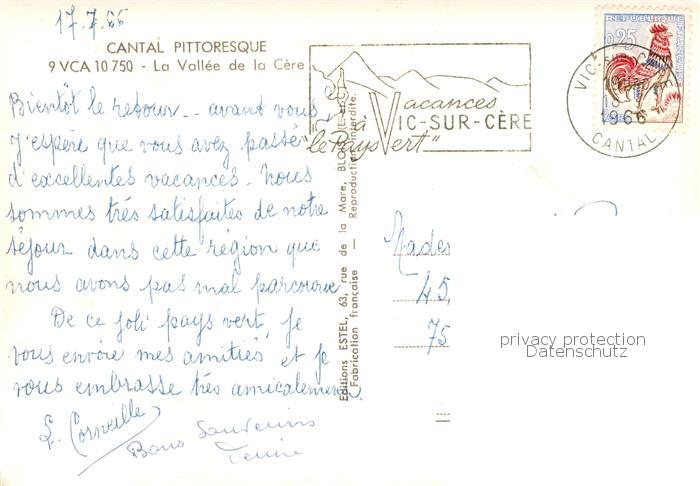 17.7.66
CANTAL PITTORESQUE
9 VCA 10 750 - La Vallée de la Cère
Bientôt le retour.. avant vous
J'espère que vous avez passé
d'excellentes vacances. Nous
sommes très satisfaites de notre
séjour dans cette région que
nous avons pas mal parcourue
De ce joli pays vert, je
vous envoie mes amitiés et je
vous embrasse très amicalement.
L. Corneille
Bons Souvenirs
Editions ESTEL, 63, rue de la Mare, BLOIS
Fabrication française — Reproduction interdite.
Vacances
VIC-SUR-CÈRE
"le Pays Vert"
REPUBLIQUE FRANÇAISE
0,25
VIC-SUR-CÈRE
18
1966
CANTAL
45,
75
privacy protection
Datenschutz